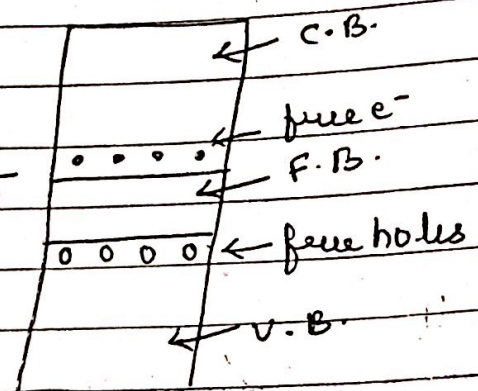 C.B.
free e⁻
F.B.
free holes
V.B.